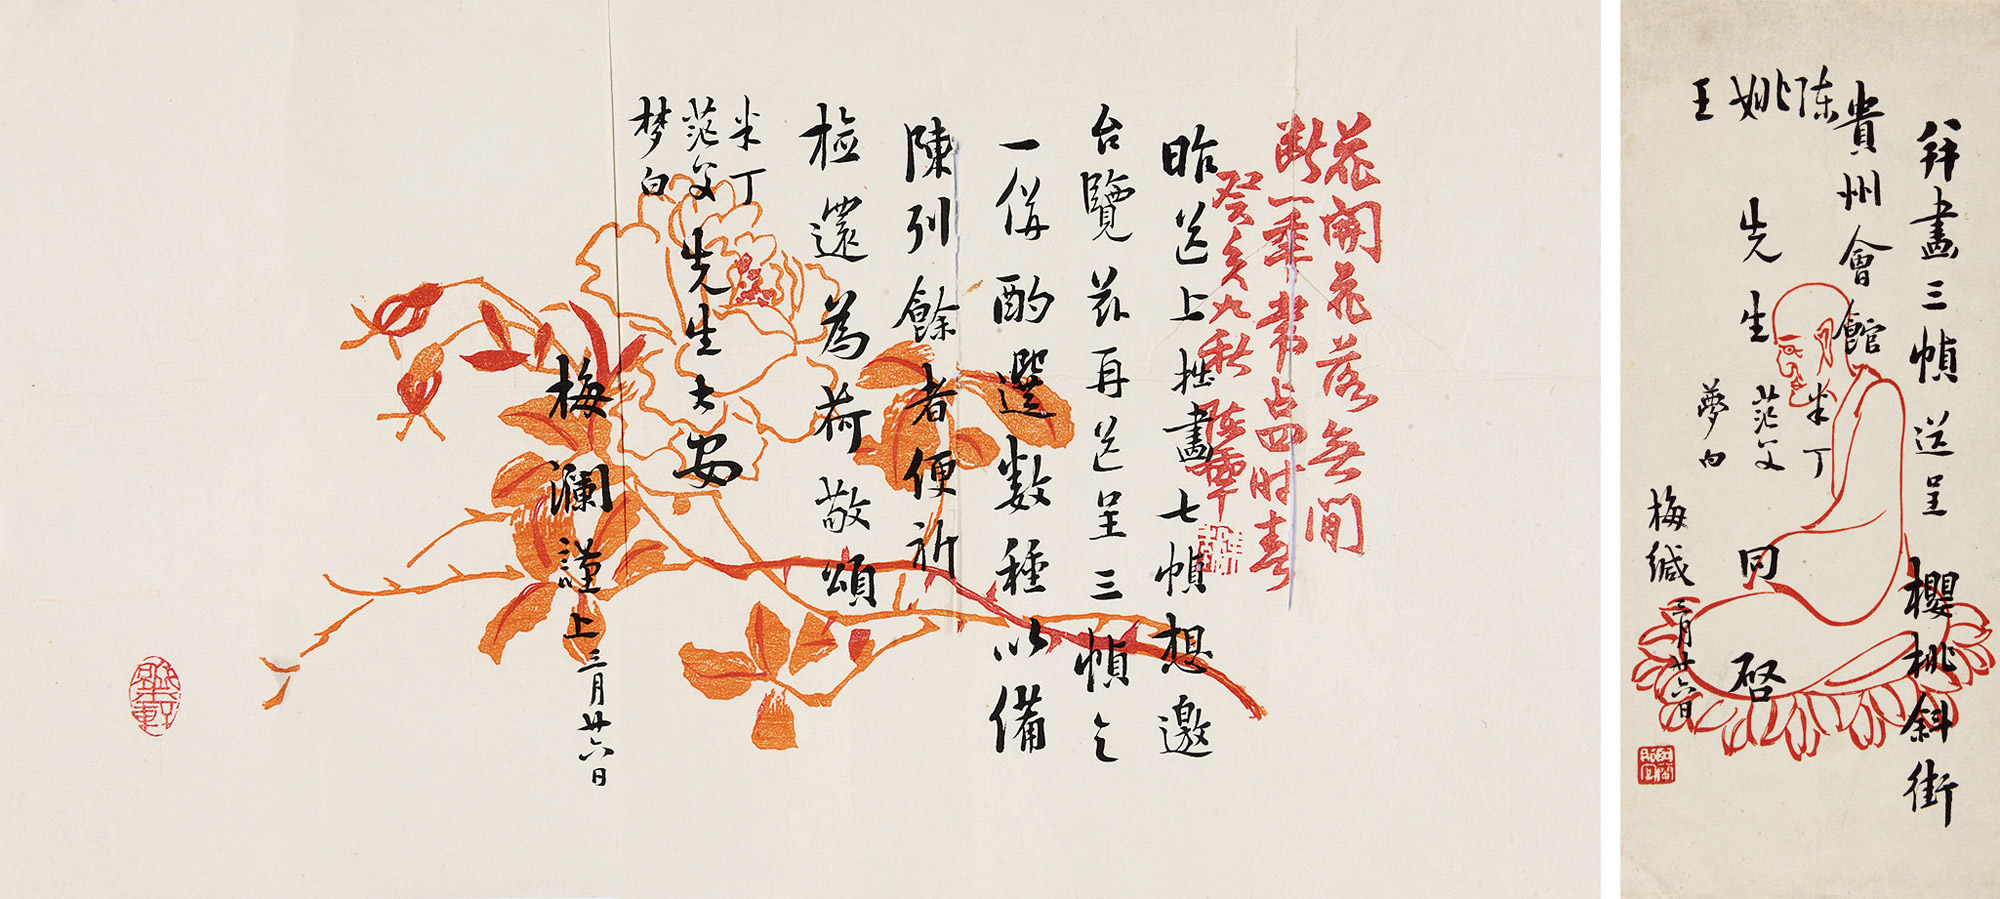 花開花落無間
断一年常占四时春
癸亥九秋 陈年
昨送上拙畫七幀想邀
台覽茲再送呈三幀乞
一併酌選数種以備
陳列餘者便祈
檢還為荷敬頌
半丁
茫父先生大安
梦白
梅瀾謹上三月廿六日
并畫三幀送呈 櫻桃斜街
貴州會館
陈 半丁
姚 先生 茫父 同啓
王 夢白
梅缄 三月廿六日